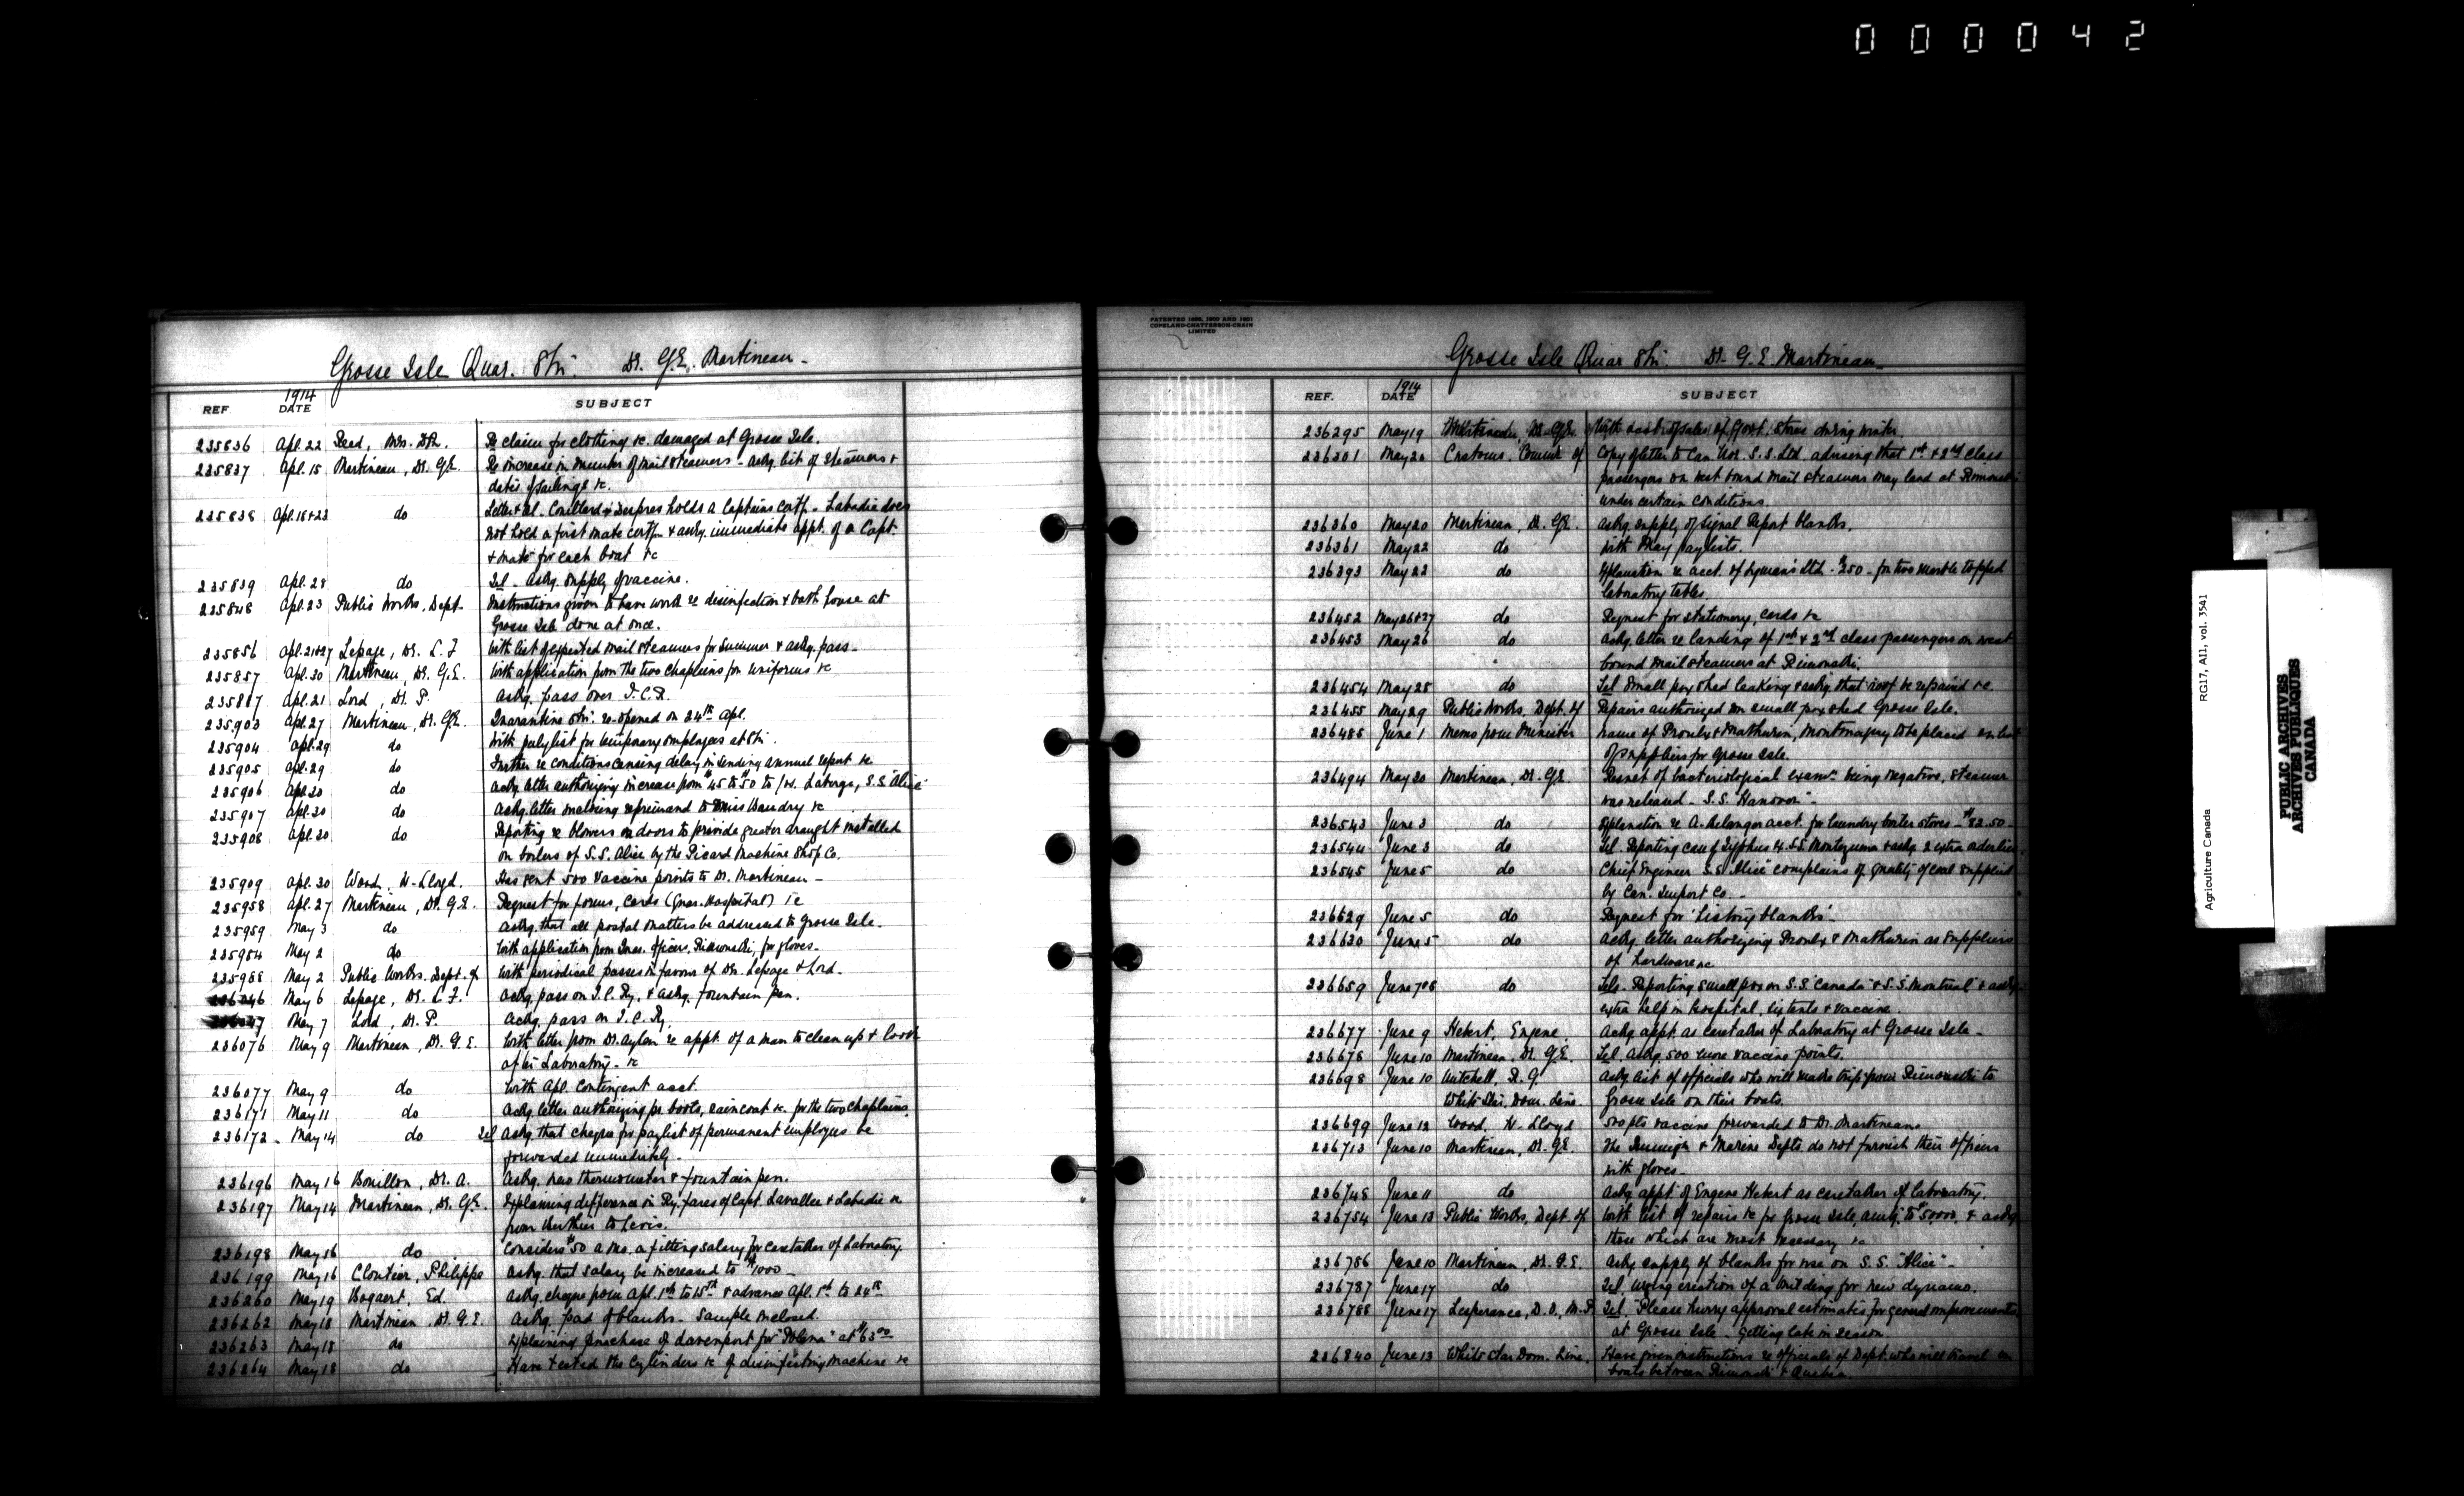 000042
Grosse Isle Quar. Stn. Dr. G.E. Martineau -
REF. 1914 DATE SUBJECT
235836 Apl. 22 Read, Mrs. Re claim for clothing &c. damaged at Grosse Isle.
235837 Apl. 15 Martineau, Dr. G.E. Re increase in number of mail steamers - askg. list of steamers &
dates of sailings &c.
235838 Apl. 18 & 23 do Letter & tel. Couillard Despres holds a Captains certf. - Labadie does
not hold a first mate certf. & askg. immediate appt. of a Capt.
& mate for each boat &c
235839 Apl. 28 do Tel - Askg. supply of vaccine.
235848 Apl. 23 Public Works, Dept. Instructions given to have work re disinfection & bath house at
Grosse Isle done at once.
235856 Apl. 21&27 Lepage, Dr. L. F. With list of expected mail steamers for Summer & askg. pass -
235857 Apl. 30 Martineau, Dr. G.E. With application from the two chaplains for uniforms &c
235887 Apl. 21 Lord, Dr. P. Askg. pass over I.C.R.
235903 Apl. 27 Martineau, Dr. G.E. Quarantine Stn. re-opened on 24th Apl.
235904 Apl. 29 do With paylist for temporary employees at Stn.
235905 Apl. 29 do Further re conditions causing delay in sending annual report &c
235906 Apl. 30 do Askg. letter authorizing increase from $45 to $50 to Laberge, S.S. "Alice"
235907 Apl. 30 do Askg. letter making reprimand to Baudry &c
235908 Apl. 30 do Reporting re blowers on doors to provide greater draught installed
on boilers of S.S. Alice by the Picard Machine Shop Co.
235909 Apl. 30 Wood, H. Lloyd. Has sent 500 vaccine points to Dr. Martineau -
235958 Apl. 27 Martineau, Dr. G.E. Request for forms, cards (Quar. Hospital) &c
235959 May 3 do Askg. that all postal matters be addressed to Grosse Isle.
235984 May 2 do With application from Quar. Officers, Rimouski, for gloves -
235988 May 2 Public Works. Dept. of With periodical passes in favour of Drs. Lepage & Lord.
236046 May 6 Lepage, Dr. L. F. Ackg. pass on I.C. Ry. & askg. fountain pen.
236047 May 7 Lord, Dr. P. Ackg. pass on I.C. Ry.
236076 May 9 Martineau, Dr. G. E. With letter from Dr. Aylen re appt. of a man to clean up & look
after Laboratory - &c
236077 May 9 do With Apl. Contingent acct.
236171 May 11 do Askg. letter authorizing pr. boots, raincoat &c. for the two chaplains.
236172 - May 14 do Tel Askg. that cheque for paylist of permanent employees be
forwarded immediately -
236196 May 16 Bouillon, Dr. A. Askg. new thermometer & fountain pen.
236197 May 14 Martineau, Dr. G.E. Explaining difference in Ry. fares of Capt. Lavallee & Labadie &c
from Berthier to Levis.
236198 May 16 do Considers $50 a mo. a fitting salary for caretaker of Laboratory
236199 May 16 Cloutier, Philippe Askg. that salary be increased to $1000 -
236260 May 19 Bogaert, Ed. Askg. cheque from Apl. 1st to 15th & advance Apl. 1st to 24th
236262 May 18 Martineau, Dr. G.E. Askg. pad of blanks - Sample enclosed.
236263 May 18 do Explaining purchase of davenport for at $63.00
236264 May 18 do Have tested the cylinders &c of disinfecting machine &c
PATENTED 1898, 1900 AND 1901
COPELAND-CHATTERSON-CRAIN
LIMITED
Grosse Isle Quar Stn. Dr. G. E. Martineau -
REF. 1914 DATE SUBJECT
236295 May 19 Martineau, Dr. G.E. With of Govt. store during winter
236301 May 20 Customs, Commr. of Copy of letter to Can. Nor. S.S. Ltd. advising that 1st & 2nd class
passengers on west bound mail steamers may land at Rimouski
under certain conditions
236360 May 20 Martineau, Dr. G.E. Askg. supply of Signal Report blanks.
236361 May 22 do With May paylists.
236393 May 22 do Explanation re acct. of Lyman's Ltd - $250 - for two marble topped
laboratory tables.
236452 May 26&27 do Request for stationery, cards &c
236453 May 26 do Ackg. letter re landing of 1st & 2nd class passengers on west
bound mail steamers at Rimouski.
236454 May 28 do Tel Small pox shed leaking & askg. that roof be repaired &c.
236455 May 29 Public Works, Dept. of Repairs authorized on small pox shed Grosse Isle.
236485 June 1 Memo from Minister Name of Proulx & Mathurin, Montmagny to be placed on list
of suppliers for Grosse Isle.
236494 May 30 Martineau, Dr. G.E. Result of bacteriological examn. being negative, steamer
was released - S.S. "Hanover" -
236543 June 3 do Explanation re A. Belanger acct. for laundry boiler stoves - $82.50 -
236544 June 3 do Tel. Reporting case of Typhus S.S. Montezuma & askg. 2 extra orderlies.
236545 June 5 do Chief Engineer S.S. "Alice" complains of quality of coal supplied
by Can. Import Co -
236629 June 5 do Request for 'history blanks' -
236630 June 5 do Ackg. letter authorizing Proulx & Mathurin as suppliers
of hardware &c
236659 June 7&8 do Tels. Reporting small pox on S.S. "Canada" & S.S. "Montreal" & askg.
extra help in hospital, tents & vaccine.
236677 June 9 Hebert, Eugene Askg. appt. as caretaker of Laboratory at Grosse Isle -
236678 June 10 Martineau, Dr. G.E. Tel. Askg. 500 more vaccine points.
236698 June 10 Mitchell, R. G. Askg. list of officials who will make trip from Rimouski to
White Star, Dom. Line. Grosse Isle on their boats.
236699 June 12 Wood, H. Lloyd 500 pts vaccine forwarded to Dr. Martineau
236713 June 10 Martineau, Dr. G.E. The Immigh. & Marine Depts. do not furnish their officers
with gloves -
236748 June 11 do Askg. appt. of Eugene Hebert as caretaker of laboratory.
236754 June 13 Public Works, Dept. of With list of repairs &c for Grosse Isle, amtg. to $50,000, & askg.
those which are most necessary &c
236786 June 10 Martineau, Dr. G.E. Askg. supply of blanks for use on S.S. "Alice" -
236787 June 17 do Tel. Urging erection of a building for new dynamo.
236788 June 17 Lesperance, D. O., M.P. Tel. "Please hurry approval estimates for general improvements
at Grosse Isle - getting late in season.
236840 June 13 White Star Dom. Line. Have given instructions re officials of Dept. who will travel on
boats between Rimouski & Quebec.
Agriculture Canada RG17, A11, vol. 3541
PUBLIC ARCHIVES
ARCHIVES PUBLIQUES
CANADA